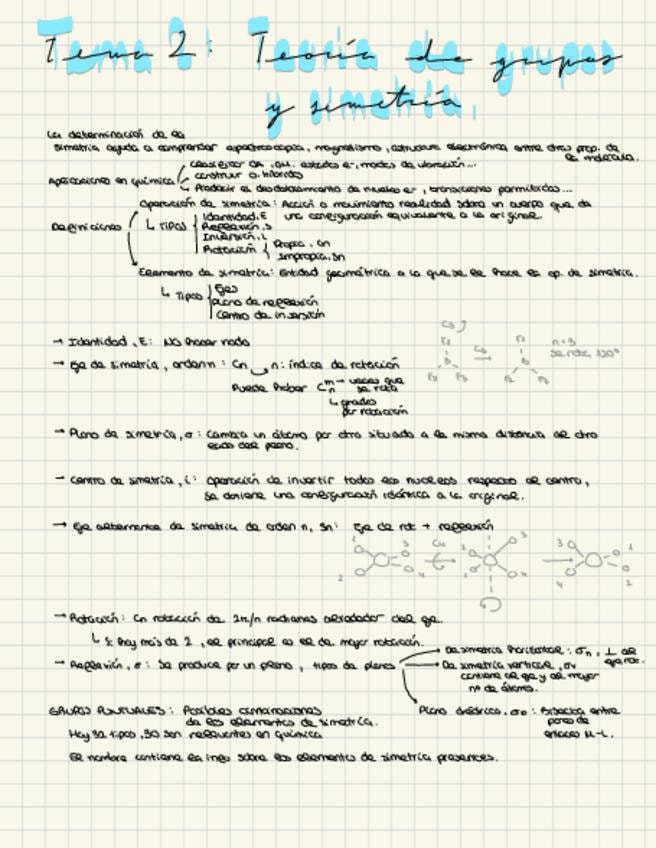 Tema 2: Teoría de grupos
y simetría.
La determinación de la
simetría ayuda a comprender espectroscopía, magnetismo, estructura electrónica entre otras prop. de
la molécula.
Aplicaciones en química
Clasificar OA, OM, estados e-, modos de vibración...
Construir o. híbridos
Predecir el desdoblamiento de niveles e-, transiciones permitidas...
Definiciones
Operación de simetría: Acción o movimiento realizado sobre un cuerpo que da
una configuración equivalente a la original.
↳ TIPOS
Identidad, E
Reflexión, S
Inversión, i
Rotación
Propia, Cn
Impropia, Sn
Elemento de simetría: Entidad geométrica a la que se le hace la op. de simetría.
↳ Tipos
Ejes
Plano de reflexión
Centro de inversión
→ Identidad, E: No hacer nada
→ Eje de simetría, orden n: Cn n: índice de rotación
Puede haber C m n → veces que
se rota
↳ grados
por rotación
C3
F1
B
F2 F3
C3
F1
B
F2 F3
n=3
se rota 120°
→ Plano de simetría, σ: Cambia un átomo por otro situado a la misma distancia al otro
lado del plano.
→ Centro de simetría, i: Operación de invertir todos los núcleos respecto al centro,
se obtiene una configuración idéntica a la original.
→ Eje alternante de simetría de orden n, Sn: Eje de rot + reflexión
→ Rotación: Cn rotación de 2π/n radianes alrededor del eje.
↳ Si hay más de 2, el principal es el de mayor rotación.
→ Reflexión, σ: Se produce por un plano, tipos de planos
De simetría horizontal: σh, ⊥ al
eje rot.
De simetría vertical, σv
contiene al eje y al mayor
nº de átomos.
Plano diédrico, σD: Bisecta entre
pares de
enlaces M-L.
GRUPOS PUNTUALES: Posibles combinaciones
de los elementos de simetría.
Hay 32 tipos, 30 son relevantes en química
El nombre contiene la info sobre los elementos de simetría presentes.